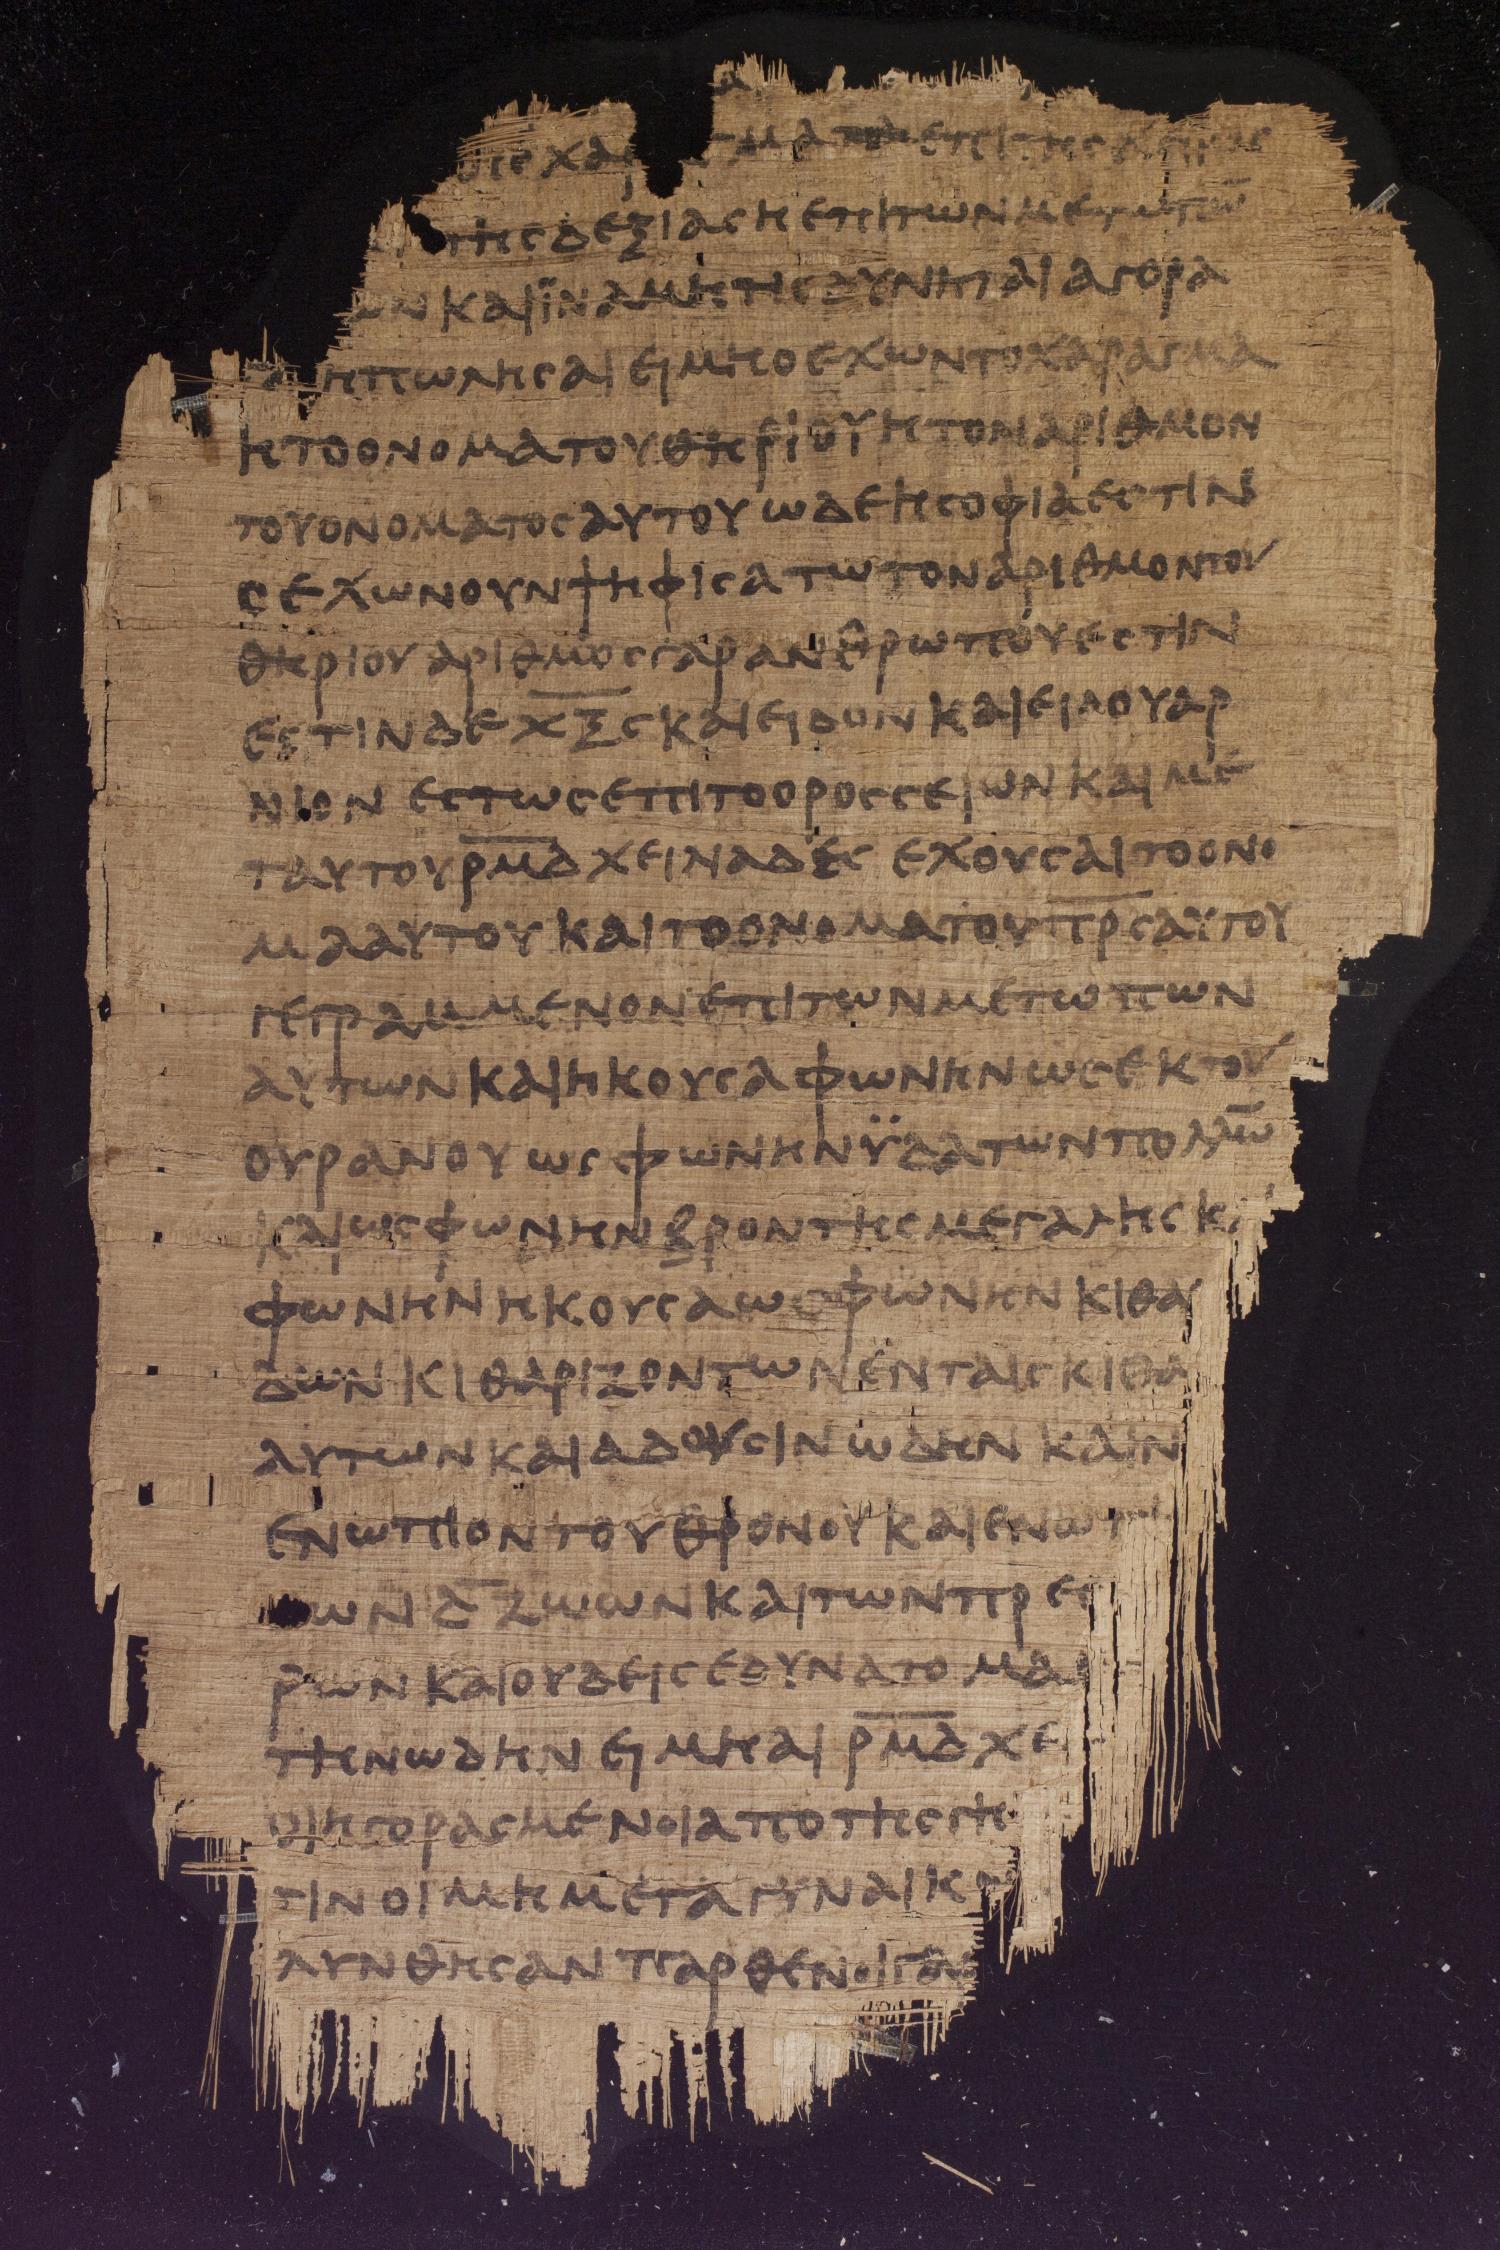 χαρ μα επι της χειρος
της δεξιας η επι των μετωπω̅
ων και ϊνα μη τις δυνηται αγορα
η πωλησαι ει μη ο εχων το χαραγμα
η το ονομα του θηριου η τον αριθμον
του ονοματος αυτου ωδε η σοφια εστιν
ς εχων ουν ψηφισατω τον αριθμον του
θηριου αριθμος γαρ ανθρωπου εστιν
εστιν δε χ̅ξ̅ϛ̅ και ειδον και ειδου αρ
νιον εστως επι το ορος σειων και με
τ αυτου ρ̅μ̅δ̅ χειλιαδες εχουσαι το ονο
μα αυτου και το ονομα του π̅ρ̅ς̅ αυτου
γεγραμμενον επι των μετωπων
αυτων και ηκουσα φωνην ως εκ του
ουρανου ως φωνην ϋδατων πολλω̅
και ως φωνην βροντης μεγαλης κ
φωνην ηκουσα ως φωνην κιθα
δων κιθαριζοντων εν ταις κιθα
αυτων και αδουσιν ωδην καιν
ενωπιον του θρονου και ενωπ
ων δ̅ ζωων και των πρεσ
ρων και ουδεις εδυνατο μα
την ωδην ει μη αι ρ̅μ̅δ̅ χε
οι ηγορασμενοι απο της γη
τιν οι μη μετα γυναικω
λυνθησαν παρθενοι γαρ